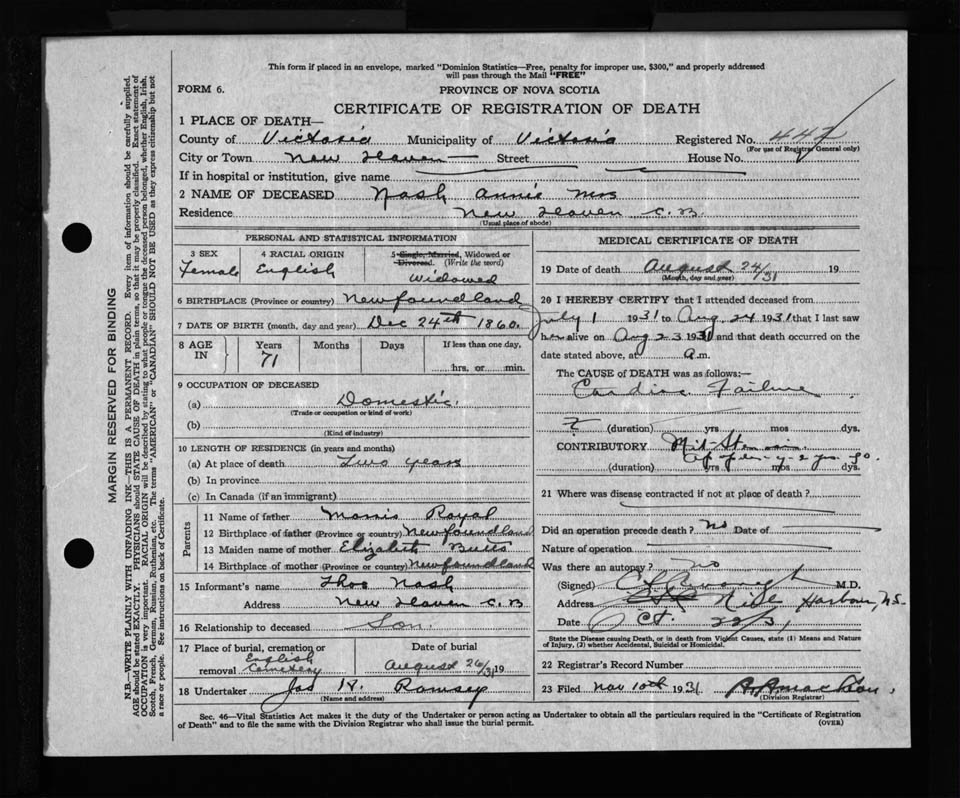 This form if placed in an envelope, marked "Dominion Statistics—Free, penalty for improper use, $300," and properly addressed
will pass through the Mail "FREE"
FORM 6.
PROVINCE OF NOVA SCOTIA
CERTIFICATE OF REGISTRATION OF DEATH
1 PLACE OF DEATH—
County of Victoria Municipality of Victoria Registered No. 447
(For use of Registrar General only)
City or Town New Haven Street House No.
If in hospital or institution, give name
2 NAME OF DECEASED Nash Annie Mrs
Residence New Haven C.B.
(Usual place of abode)
PERSONAL AND STATISTICAL INFORMATION
3 SEX 4 RACIAL ORIGIN 5 Single, Married, Widowed or
Divorced. (Write the word)
Female English Widowed
6 BIRTHPLACE (Province or country) Newfoundland
7 DATE OF BIRTH (month, day and year) Dec 24th 1860
8 AGE IN Years Months Days If less than one day,
71 hrs. or min.
9 OCCUPATION OF DECEASED
(a) Domestic.
(Trade or occupation or kind of work)
(b)
(Kind of industry)
10 LENGTH OF RESIDENCE (in years and months)
(a) At place of death Two years
(b) In province
(c) In Canada (if an immigrant)
Parents
11 Name of father Morris Royal
12 Birthplace of father (Province or country) Newfoundland
13 Maiden name of mother Elizabeth Butts
14 Birthplace of mother (Province or country) Newfoundland
15 Informant's name Thos Nash
Address New Haven C.B
16 Relationship to deceased Son.
17 Place of burial, cremation or removal English Cemetery
Date of burial
August 26/31 19
18 Undertaker Jas W. Ramsey
(Name and address)
MEDICAL CERTIFICATE OF DEATH
19 Date of death August 24/31 19
(Month, day and year)
20 I HEREBY CERTIFY that I attended deceased from
July 1 1931 to Aug. 24 1931 that I last saw
her alive on Aug 23 1931 and that death occurred on the
date stated above, at a.m.
The CAUSE OF DEATH was as follows:—
Cardiac Failure
(duration) yrs mos dys.
CONTRIBUTORY
(duration) yrs mos dys.
21 Where was disease contracted if not at place of death?
Did an operation precede death? No Date of
Nature of operation
Was there an autopsy? No
(Signed) M.D.
Address Neil Harbour, N.S.
Date 22/31
State the Disease causing Death, or in death from Violent Causes, state (1) Means and Nature
of Injury, (2) whether Accidental, Suicidal or Homicidal.
22 Registrar's Record Number
23 Filed Nov 10th 1931
(Division Registrar)
Sec. 46—Vital Statistics Act makes it the duty of the Undertaker or person acting as Undertaker to obtain all the particulars required in the "Certificate of Registration
of Death" and to file the same with the Division Registrar who shall issue the burial permit. (OVER)
MARGIN RESERVED FOR BINDING
N.B.—WRITE PLAINLY WITH UNFADING INK—THIS IS A PERMANENT RECORD. Every item of information should be carefully supplied.
AGE should be stated EXACTLY. PHYSICIANS should STATE CAUSE OF DEATH in plain terms, so that it may be properly classified. Exact statement of
OCCUPATION is very important. RACIAL ORIGIN will be described by stating to what people or tongue the deceased person belonged, whether English, Irish,
Scotch, French, German, Russian, Ruthenian, etc. The terms "AMERICAN" or "CANADIAN" SHOULD NOT BE USED as they express citizenship but not
a race or people. See instructions on back of Certificate.